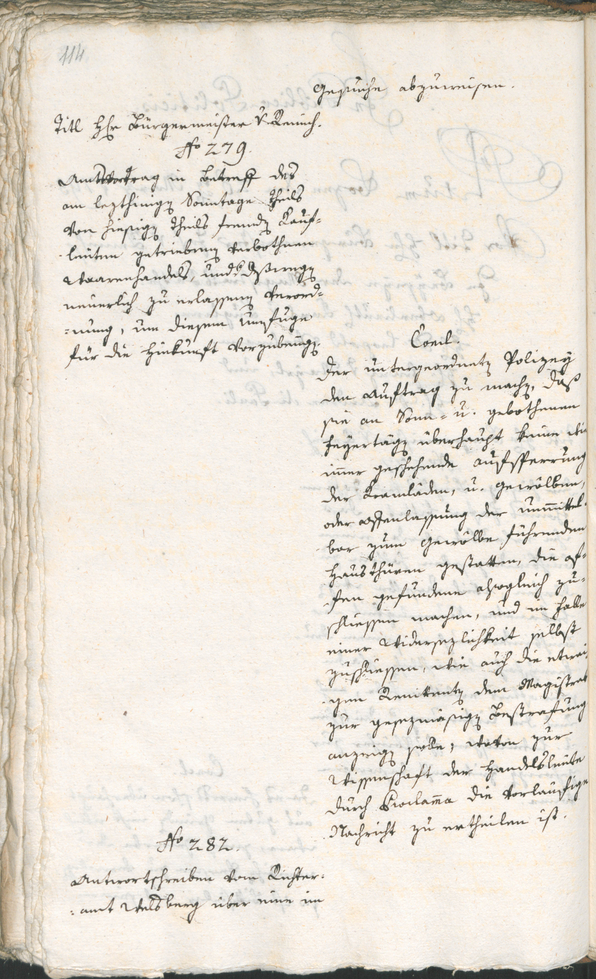 114
Gesuche abzuweisen.
Titl Hr Bürgermeister v. 
No 279
Amtsvortrag in Betreff des
am lezthinigen Sonntage theils
von hiesigen theils fremden Kauf-
leuten getriebenen verbothenen
Waarenhandels, und
neuerlich zu erlassenen Verord-
-nung, um diesem Unfuge
für die Hinkunft vorzubeugen.
Concl.
Der untergeordneten Polizey
den Auftrag zu machen, daß
sie an Sonn- u. gebothenen
Feyertägen überhaupt keine wie
immer geschehende Aufsperrung
der Kramläden, u. Gewölben,
oder Offenlassung der unmittel-
bar zum Gewölbe führenden
Hausthüren gestatten, die of-
fen gefundene alsogleich zu-
schliessen machen, und im Falle
einer Widersezlichkeit selbst
zuschliessen, wie auch die etwai-
gen Renitenten dem Magistrat
zur gesezmäsigen Bestrafung
anzeigen solle, wovon zur
Wissenschaft der Handelsleute
durch Proclama die vorläufige
Nachricht zu ertheilen ist.
No 282
Antwortschreiben vom Richter-
-amt Welsberg über eine im